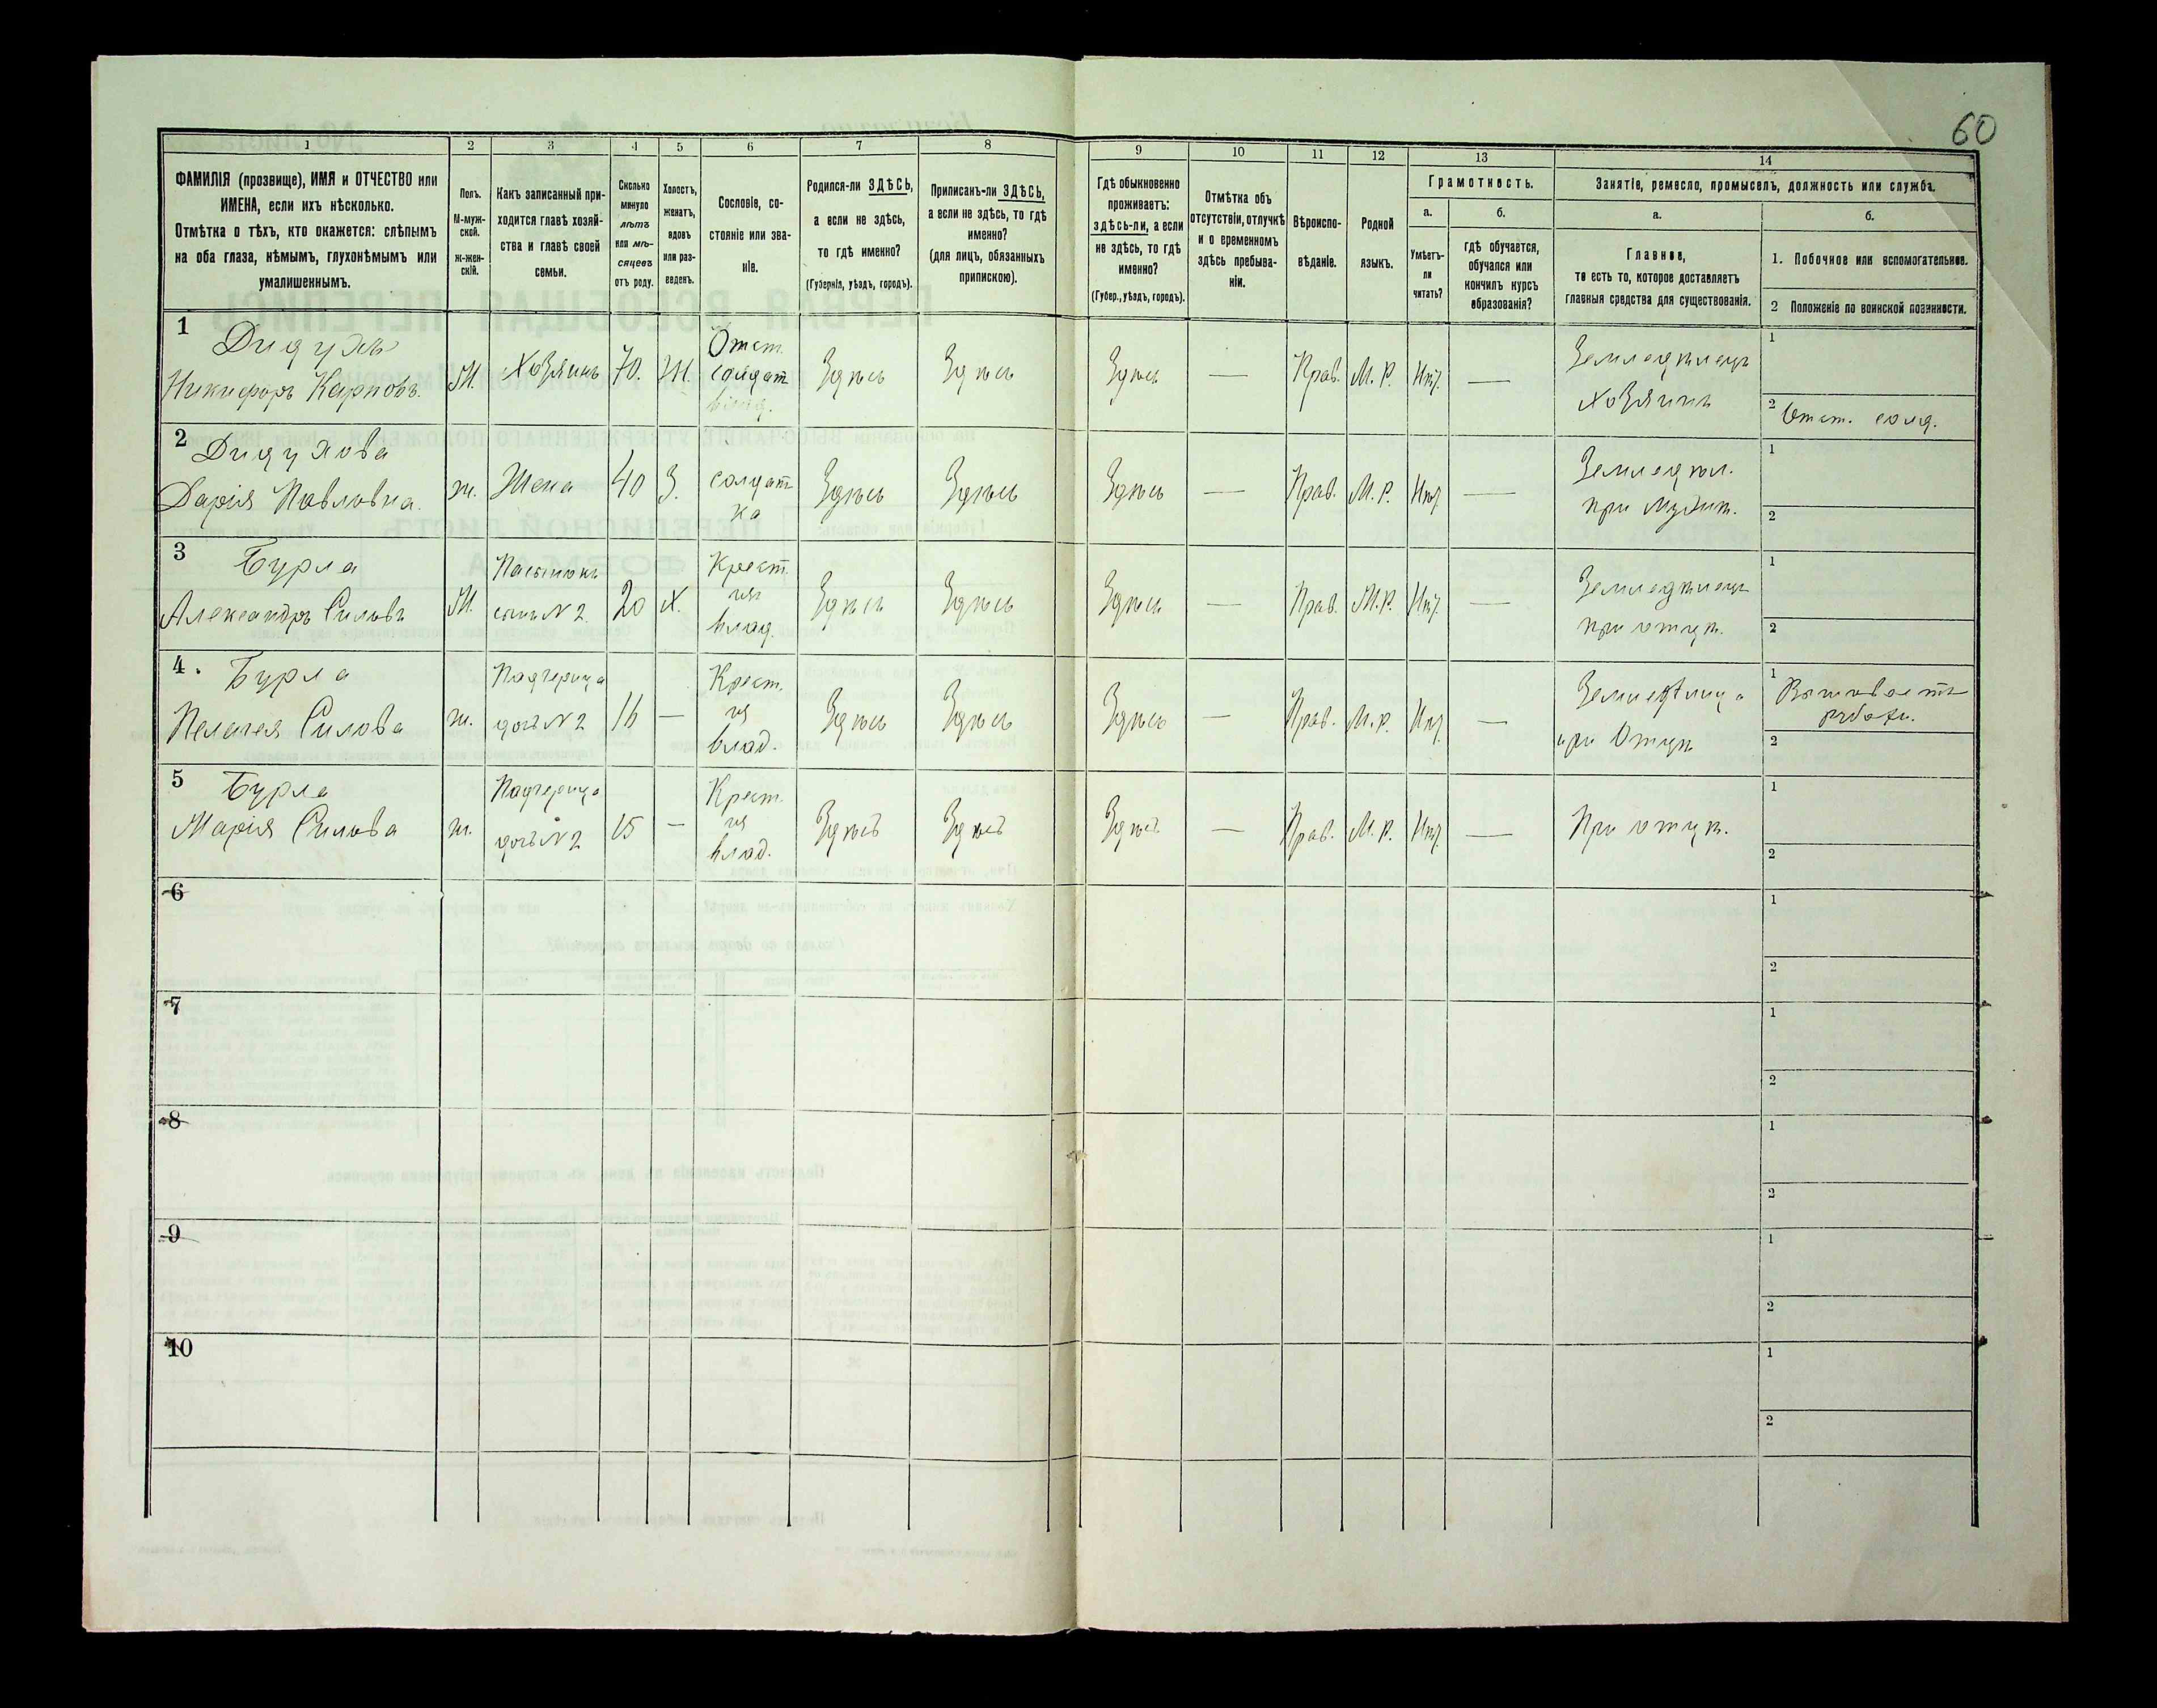 60
1
2
3
4
5
6
7
8
9
10
11
12
13
14
ФАМИЛІЯ (прозвище), ИМЯ и ОТЧЕСТВО или
ИМЕНА, если ихъ нѣсколько.
Отмѣтка о тѣхъ, кто окажется: слѣпымъ
на оба глаза, нѣмымъ, глухонѣмымъ или
умалишеннымъ.
Полъ.
М-муж-
ской.
ж-жен-
скій.
Какъ записанный при-
ходится главѣ хозяй-
ства и главѣ своей
семьи.
Сколько
минуло
лѣтъ
или мѣ-
сяцевъ
отъ роду.
Холостъ,
женатъ,
вдовъ
или раз-
веденъ.
Сословіе, со-
стояніе или зва-
ніе.
Родился-ли ЗДѢСЬ,
а если не здѣсь,
то гдѣ именно?
(Губернія, уѣздъ, городъ).
Приписанъ-ли ЗДѢСЬ,
а если не здѣсь, то гдѣ
именно?
(для лицъ, обязанныхъ
припискою).
Гдѣ обыкновенно
проживаетъ:
здѣсь-ли, а если
не здѣсь, то гдѣ
именно?
(Губер., уѣздъ, городъ).
Отмѣтка объ
отсутствіи, отлучкѣ
и о временномъ
здѣсь пребыва-
ніи.
Вѣроиспо-
вѣданіе.
Родной
языкъ.
Грамотность.
а.
Умѣетъ-
ли
читать?
б.
гдѣ обучается,
обучался или
кончилъ курсъ
образованія?
Занятіе, ремесло, промыселъ, должность или служба.
а.
Главное,
то есть то, которое доставляетъ
главныя средства для существованія.
б.
1. Побочное или вспомогательное.
2 Положеніе по воинской повинности.
1
Дидухъ
Никифоръ Карповъ.
М.
Хозяинъ
70.
Ж.
Отст.
солдат
Здѣсь
Здѣсь
Здѣсь
—
Прав.
М. Р.
Нѣт.
—
Земледѣлецъ
хозяинъ
1
2 Отст. солд.
2
Дидухова
Дарія Павловна.
ж.
Жена
40
З.
солдат
ка
Здѣсь
Здѣсь
Здѣсь
—
Прав.
М. Р.
Нѣт
—
Земледѣл.
при
1
2
3
Бурла
Александръ Силовъ
М.
Пасынокъ
сынъ N 2.
20
Х.
Крест.
влад.
Здѣсь
Здѣсь
Здѣсь
—
Прав.
М. Р.
Нѣт.
—
Земледѣлецъ
при отцѣ.
1
2
4.
Бурла
Пелагея Силова
ж.
Падчерица
дочь N 2
16
—
Крест.
влад.
Здѣсь
Здѣсь
Здѣсь
—
Прав.
М. р.
Нѣт
—
при
1
2
5
Бурла
Марія Силова
ж.
Падчерица
дочь N 2
15
—
Крест.
влад.
Здѣсь
Здѣсь
Здѣсь
—
Прав.
М. Р.
Нѣт.
—
При отцѣ.
1
2
6
1
2
7
1
2
8
1
2
9
1
2
10
1
2